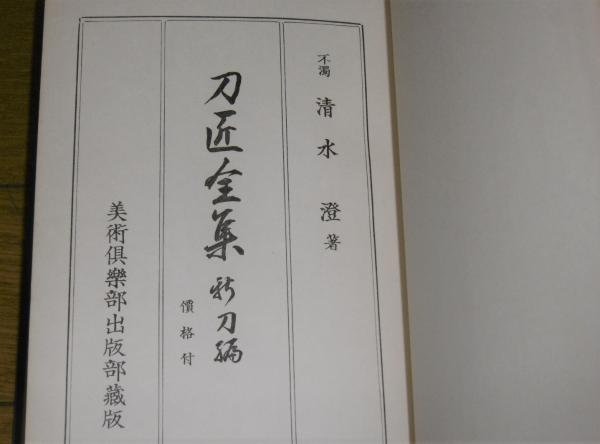 不濁 清水 澄 著
刀匠全集 新刀編
價格付
美術俱樂部出版部藏版